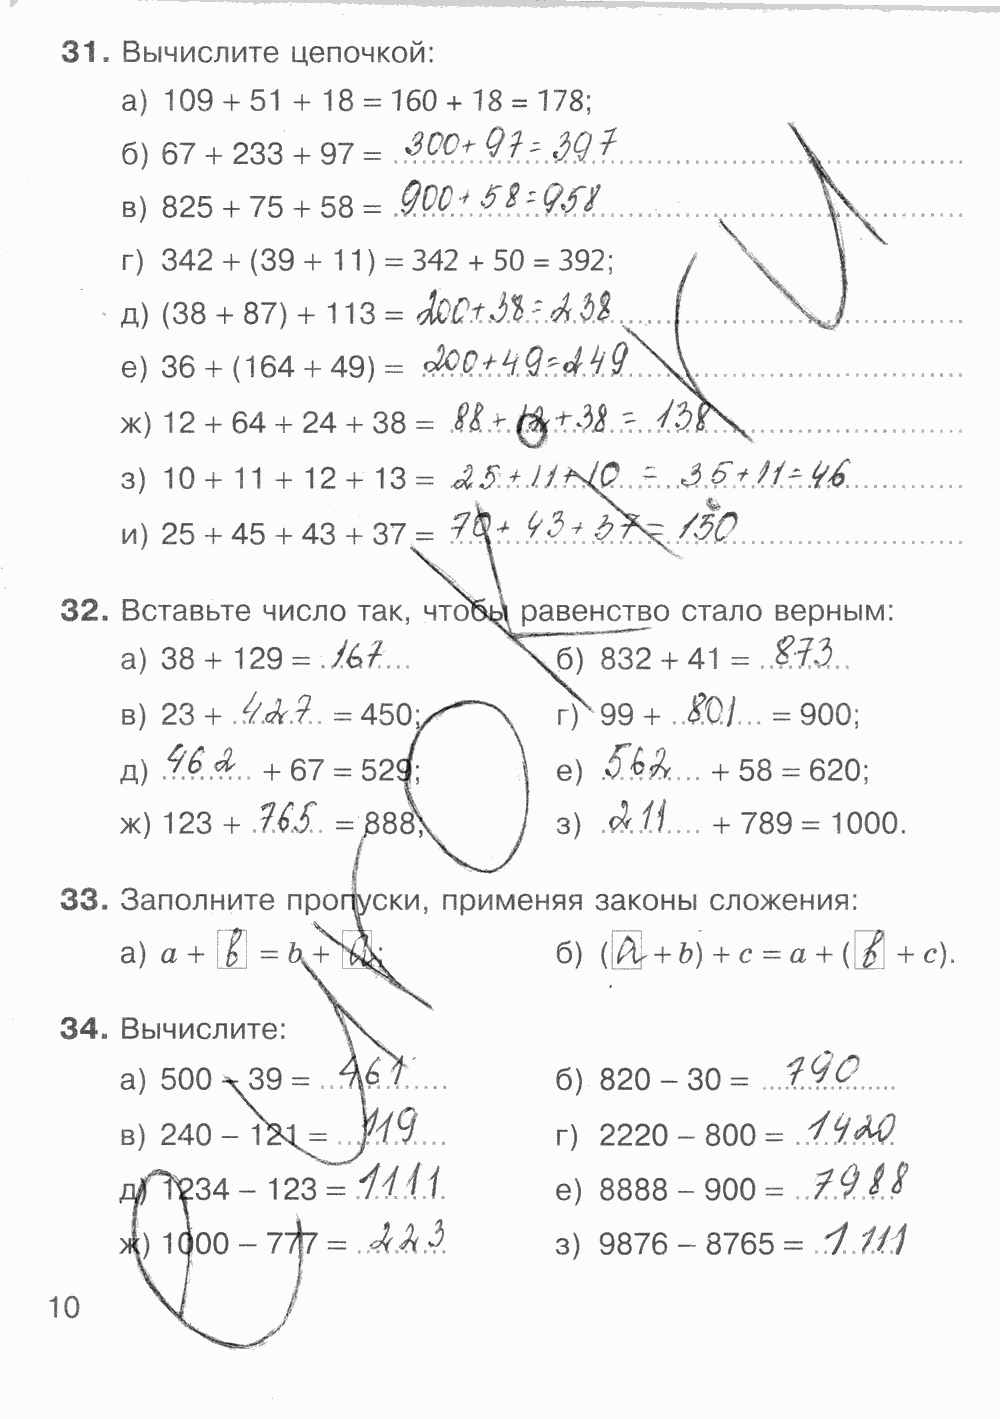 31. Вычислите цепочкой:
а) 109 + 51 + 18 = 160 + 18 = 178;
б) 67 + 233 + 97 = 300 + 97 = 397
в) 825 + 75 + 58 = 900 + 58 = 958
г) 342 + (39 + 11) = 342 + 50 = 392;
д) (38 + 87) + 113 = 200 + 38 = 238
е) 36 + (164 + 49) = 200 + 49 = 249
ж) 12 + 64 + 24 + 38 = 88 + 12 + 38 = 138
з) 10 + 11 + 12 + 13 = 25 + 11 + 10 = 35 + 11 = 46
и) 25 + 45 + 43 + 37 = 70 + 43 + 37 = 150
32. Вставьте число так, чтобы равенство стало верным:
а) 38 + 129 = 167 б) 832 + 41 = 873
в) 23 + 427 = 450; г) 99 + 801 = 900;
д) 462 + 67 = 529; е) 562 + 58 = 620;
ж) 123 + 765 = 888; з) 211 + 789 = 1000.
33. Заполните пропуски, применяя законы сложения:
а) a + в = b + a; б) (a + b) + c = a + (в + c).
34. Вычислите:
а) 500 – 39 = 461 б) 820 – 30 = 790
в) 240 – 121 = 119 г) 2220 – 800 = 1420
д) 1234 – 123 = 1111 е) 8888 – 900 = 7988
ж) 1000 – 777 = 223 з) 9876 – 8765 = 1111
10